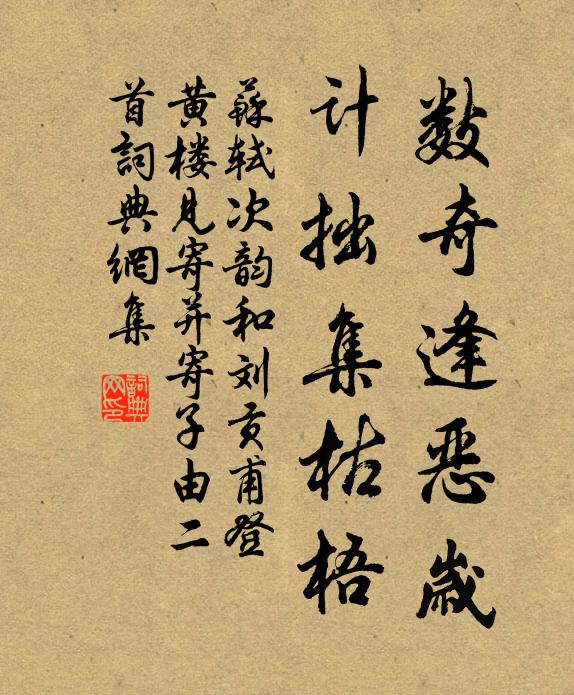 数奇逢恶歲
计拙集枯梧
蘇轼次韵和刘贡甫登
黄楼見寄并寄子由二
首詞典網集
詞典网印